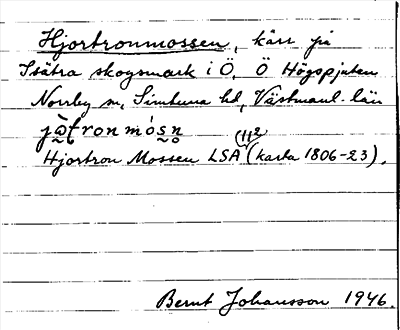 Hjortronmossen, kärr på
Isätra skogsmark i Ö, Ö Högspjuten
Norrby sn, Simtuna hd, Västmanl. län
Hjortron Mossen LSA (112 (karta 1806-23).
Bernt Johansson 1946.